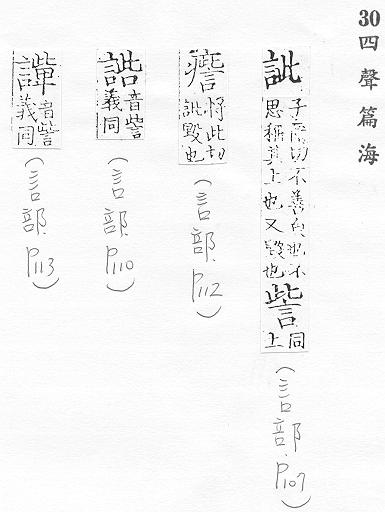 30
四聲篇海
訿
子尔切不善皃也不
思稱其上也又毀也
訾
同
上
(言部 P107)
將此切
訿毀也
(言部 P112)
音訾
義同
(言部 P110)
音訾
義同
(言部 P113)